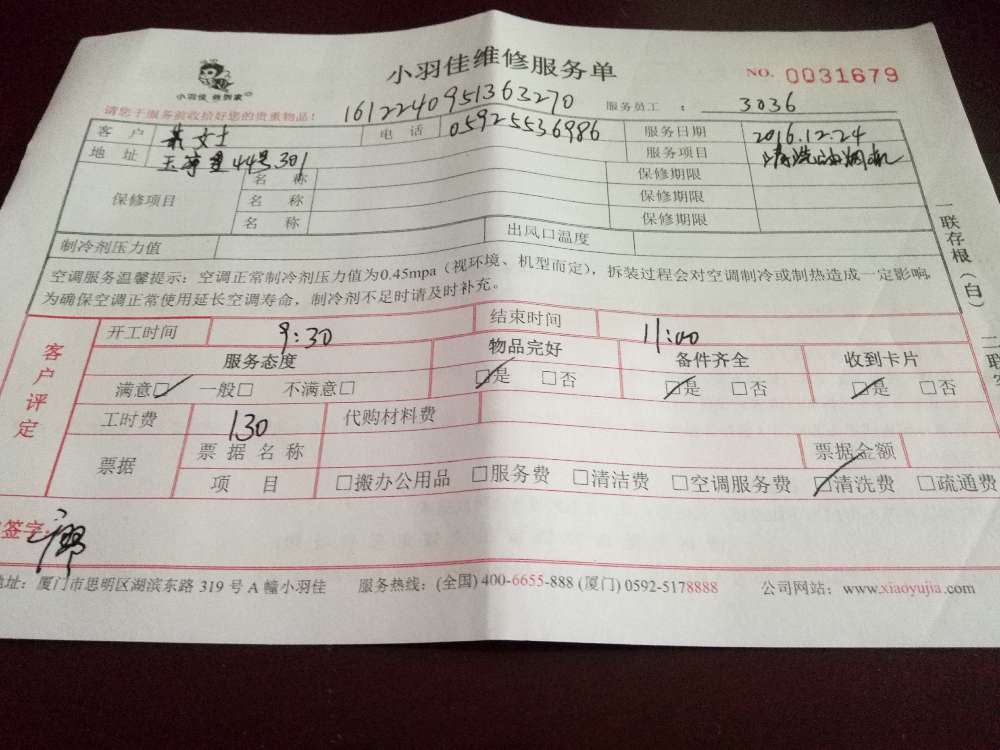 小羽佳维修服务单
NO. 0031679
小羽佳 爸到家
请您于服务前收拾好您的贵重物品！
1612240951363270
服务员工 ： 3036
客 户 女士 电 话 05925536986 服务日期 2016.12.24
地 址 44号301 服务项目 清洗油烟机
保修项目 名 称 保修期限
名 称 保修期限
名 称 保修期限
制冷剂压力值 出风口温度
空调服务温馨提示：空调正常制冷剂压力值为0.45mpa（视环境、机型而定），拆装过程会对空调制冷或制热造成一定影响，
为确保空调正常使用延长空调寿命，制冷剂不足时请及时补充。
一联存根（白）
二联
客户评定
开工时间 9:30 结束时间 11:00
服务态度 物品完好 备件齐全 收到卡片
满意☑ 一般□ 不满意□ ☑是 □否 ☑是 □否 ☑是 □否
工时费 130 代购材料费
票据 票据名称 票据金额
项 目 □搬办公用品 □服务费 □清洁费 □空调服务费 ☑清洗费 □疏通费
签字：
地址：厦门市思明区湖滨东路 319 号 A 幢小羽佳 服务热线：(全国) 400-6655-888 (厦门) 0592-5178888 公司网站：www.xiaoyujia.com